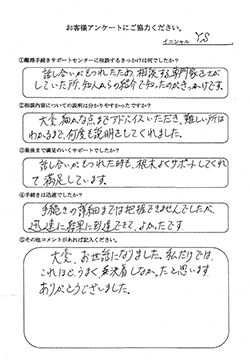 お客様アンケートにご協力ください。
イニシャル Y.S
①離婚手続きサポートセンターに相談するきっかけは何でしたか?
話し合いがもつれたため、相談する専門家をさが
していた所、知人からの紹介で知ったのがきっかけです。
②相談内容についての説明は分かりやすかったですか?
大変細かな点までアドバイスいただき、難しい所は
わかるまで、何度も説明をしてくれました。
③最後まで満足のいくサポートでしたか?
話し合いがもつれた時も、根気よくサポートしてくれ
て満足しています。
④手続きは迅速でしたか?
手続きの詳細までは把握できませんでしたが、
迅速に結果に到達できて、よかったです。
⑤その他コメントがあれば記入ください。
大変、お世話になりました。私だけでは、
これほど、うまく解決しなかったと思います
ありがとうございました。